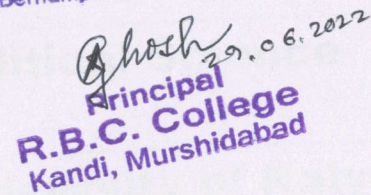 Ghosh
29.06.2022
Principal
R.B.C. College
Kandi, Murshidabad